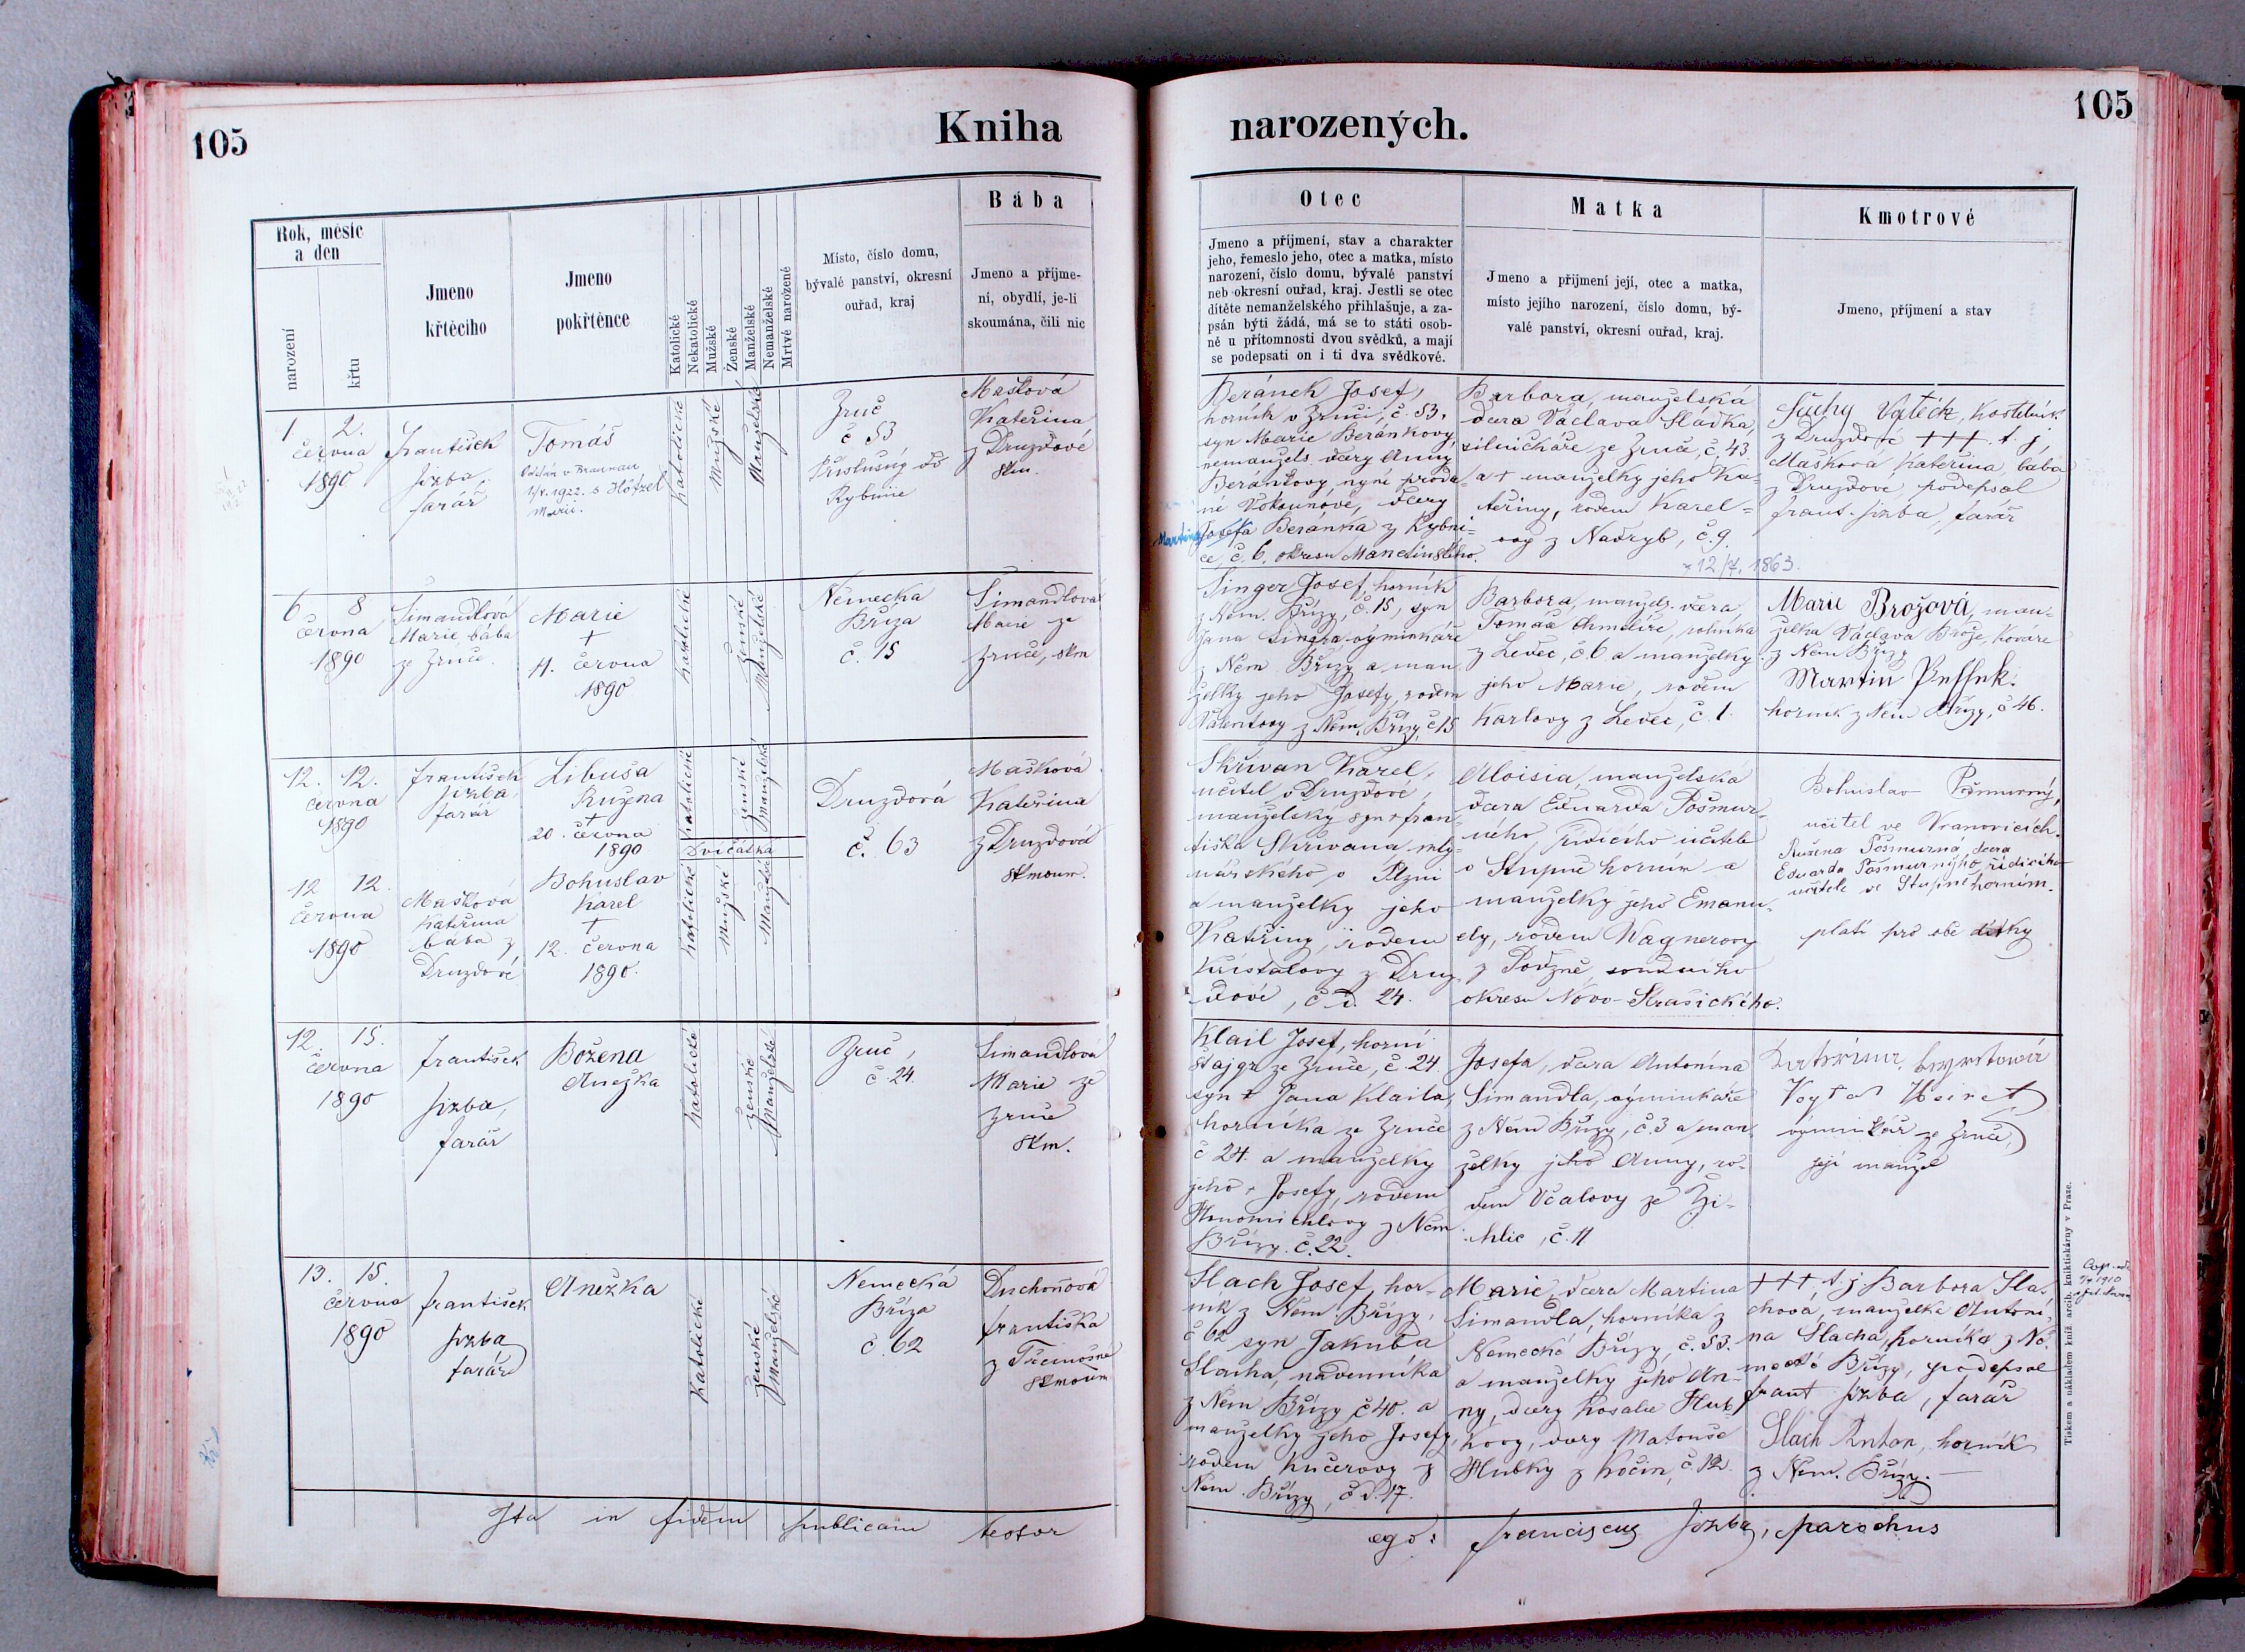 105
Kniha
narozených.
105
Rok, měsíc
a den
narození
křtu
Jmeno
křtěcího
Jmeno
pokřtěnce
Katolické
Nekatolické
Mužské
Ženské
Manželské
Nemanželské
Mrtvě narozené
Místo, číslo domu,
bývalé panství, okresní
ouřad, kraj
Bába
Jmeno a příjme-
ní, obydlí, je-li
skoumána, čili nic
Otec
Jmeno a příjmení, stav a charakter
jeho, řemeslo jeho, otec a matka, místo
narození, číslo domu, bývalé panství
neb okresní ouřad, kraj. Jestli se otec
dítěte nemanželského přihlašuje, a za-
psán býti žádá, má se to státi osob-
ně u přítomnosti dvou svědků, a mají
se podepsati on i ti dva svědkové.
Matka
Jmeno a příjmení její, otec a matka,
místo jejího narození, číslo domu, bý-
valé panství, okresní ouřad, kraj.
Kmotrové
Jmeno, příjmení a stav
1 2.
června
1890
František
Jizba,
farář
Tomáš
1922. s Hötzel
Marie.
Katolické
Mužské
Manželské
Zruč
č 53
Příslušný do
Rybnice
Mašková
Kateřina
z Druzdové
skm.
Beránek Josef,
horník v Zruči, č. 53,
syn Marie Beránkovy,
nemanžels. dcery Anny
Beránkovy, nyní provda-
né Vokounové, dcery
Martina
Josefa Beránka z Rybni-
ce, č. 6, okresu Manetinského.
Barbora, manželská
dcera Václava Sládka,
silničkáře ze Zruče, č. 43.
a + manželky jeho Ka-
teřiny, rodem Karel-
ovy z Nadryb, č. 9.
* 12/7. 1863.
kostelník
z Druzdové +++ t. j.
Mašková Kateřina, bába
z Druzdové, podepsal
Frant. Jizba, farář
6 8
června
1890
Šimandlová
Marie, bába
ze Zruče
Marie
+
11. června
1890
Katolické
ženské
Manželské
Německá
Bříza
č. 15
Šimandlová
Marie ze
Zruče, skm
Singer Josef, horník
z Něm. Břízy, č. 15, syn
Jana Singra výminkáře
z Něm. Břízy a man
želky jeho Josefy, rodem
z Něm. Břízy, č 15
Barbora, manžels. dcera
Tomáše rolníka
z Ledec, č 6 a manželky
jeho Marie, rodem
Karlovy z Ledec, č. 1.
Marie Brožová, man-
želka Václava Brože, kováře
z Něm Břízy
Martin
horník z Něm Břízy, č 46.
12. 12.
června
1890
František
Jizba,
farář
Libuša
Růžena
+
20. června
1890
Katolické
ženské
Manželské
Dvíčátka
12 12.
června
1890
Mašková
Kateřina
bába z
Druzdové
Bohuslav
Karel
+
12. června
1890.
Katolické
Mužské
Manželské
Druzdová
č. 63
Mašková
Kateřina
z Druzdová
skmoum.
Skřivan Karel,
učitel v Druzdové,
manželský syn + Fran-
tiška Skřivana mly-
nářského v Plzni
a manželky jeho
Kateřiny, rodem
Křístalovy z Druz-
dové, č d. 24.
Aloisia, manželská
dcera Eduarda Pošmur-
ného, řídícího učitele
v Stupně horním a
manželky jeho Emanu-
ely, rodem Wagnerovy
z soudního
okresu Novo-Strašického.
Bohuslav Pošmurný,
učitel ve Vranovicích.
Růžena Pošmurná, dcera
Eduarda Pošmurnýho řídícího
učitele ve Stupně horním.
platí pro obě dítky
12. 15.
června
1890
František
Jizba,
farář
Božena
Anežka
Katolické
ženské
Manželské
Zruč,
č 24.
Šimandlová
Marie ze
Zruče
skm.
Klail Josef, horní
štajgr ze Zruče, č. 24
syn + Jana Klaila,
horníka ze Zruče
č 24. a manželky
jeho + Josefy, rodem
z Něm
Břízy. č. 22.
Josefa, dcera Antonína
Šimandla, výminkáře
z Něm Břízy, č. 3 a man-
želky jeho Anny, ro-
dem Včalovy ze Ži-
chlic, č. 11
výminkář ze Zruče,
její manžel
13. 15.
června
1890
František
Jizba
farář
Anežka
Katolické
ženské
Manželské
Německá
Bříza
č. 62
Duchoňová
Františka
z Třemošna
skmoum
Slach Josef, hor-
ník z Něm Břízy,
č 62 syn Jakuba
Slacha, nádenníka
z Něm Břízy č 40. a
manželky jeho Josefy,
rodem Kučerovy z
Něm. Břízy, č d. 17.
Marie, dcera Martina
Šimandla, horníka z
Německé Břízy, č. 53.
a manželky jeho An-
ny, dcery Rosalie Hub-
kovy, dcery Matouše
Hubky z Kočín, č 12.
+++, t. j Barbora Sla-
chová, manželka Antoní-
na Slacha, horníka z Ně-
mecké Břízy, podepsal
Frant Jizba, farář
Slach Anton, horník
z Něm. Břízy.
Ita in fidem publicam testor
ego: Franciscus Jizba, parochus
Tiskem a nákladem kníž. arcib. knihtiskárny v Praze.